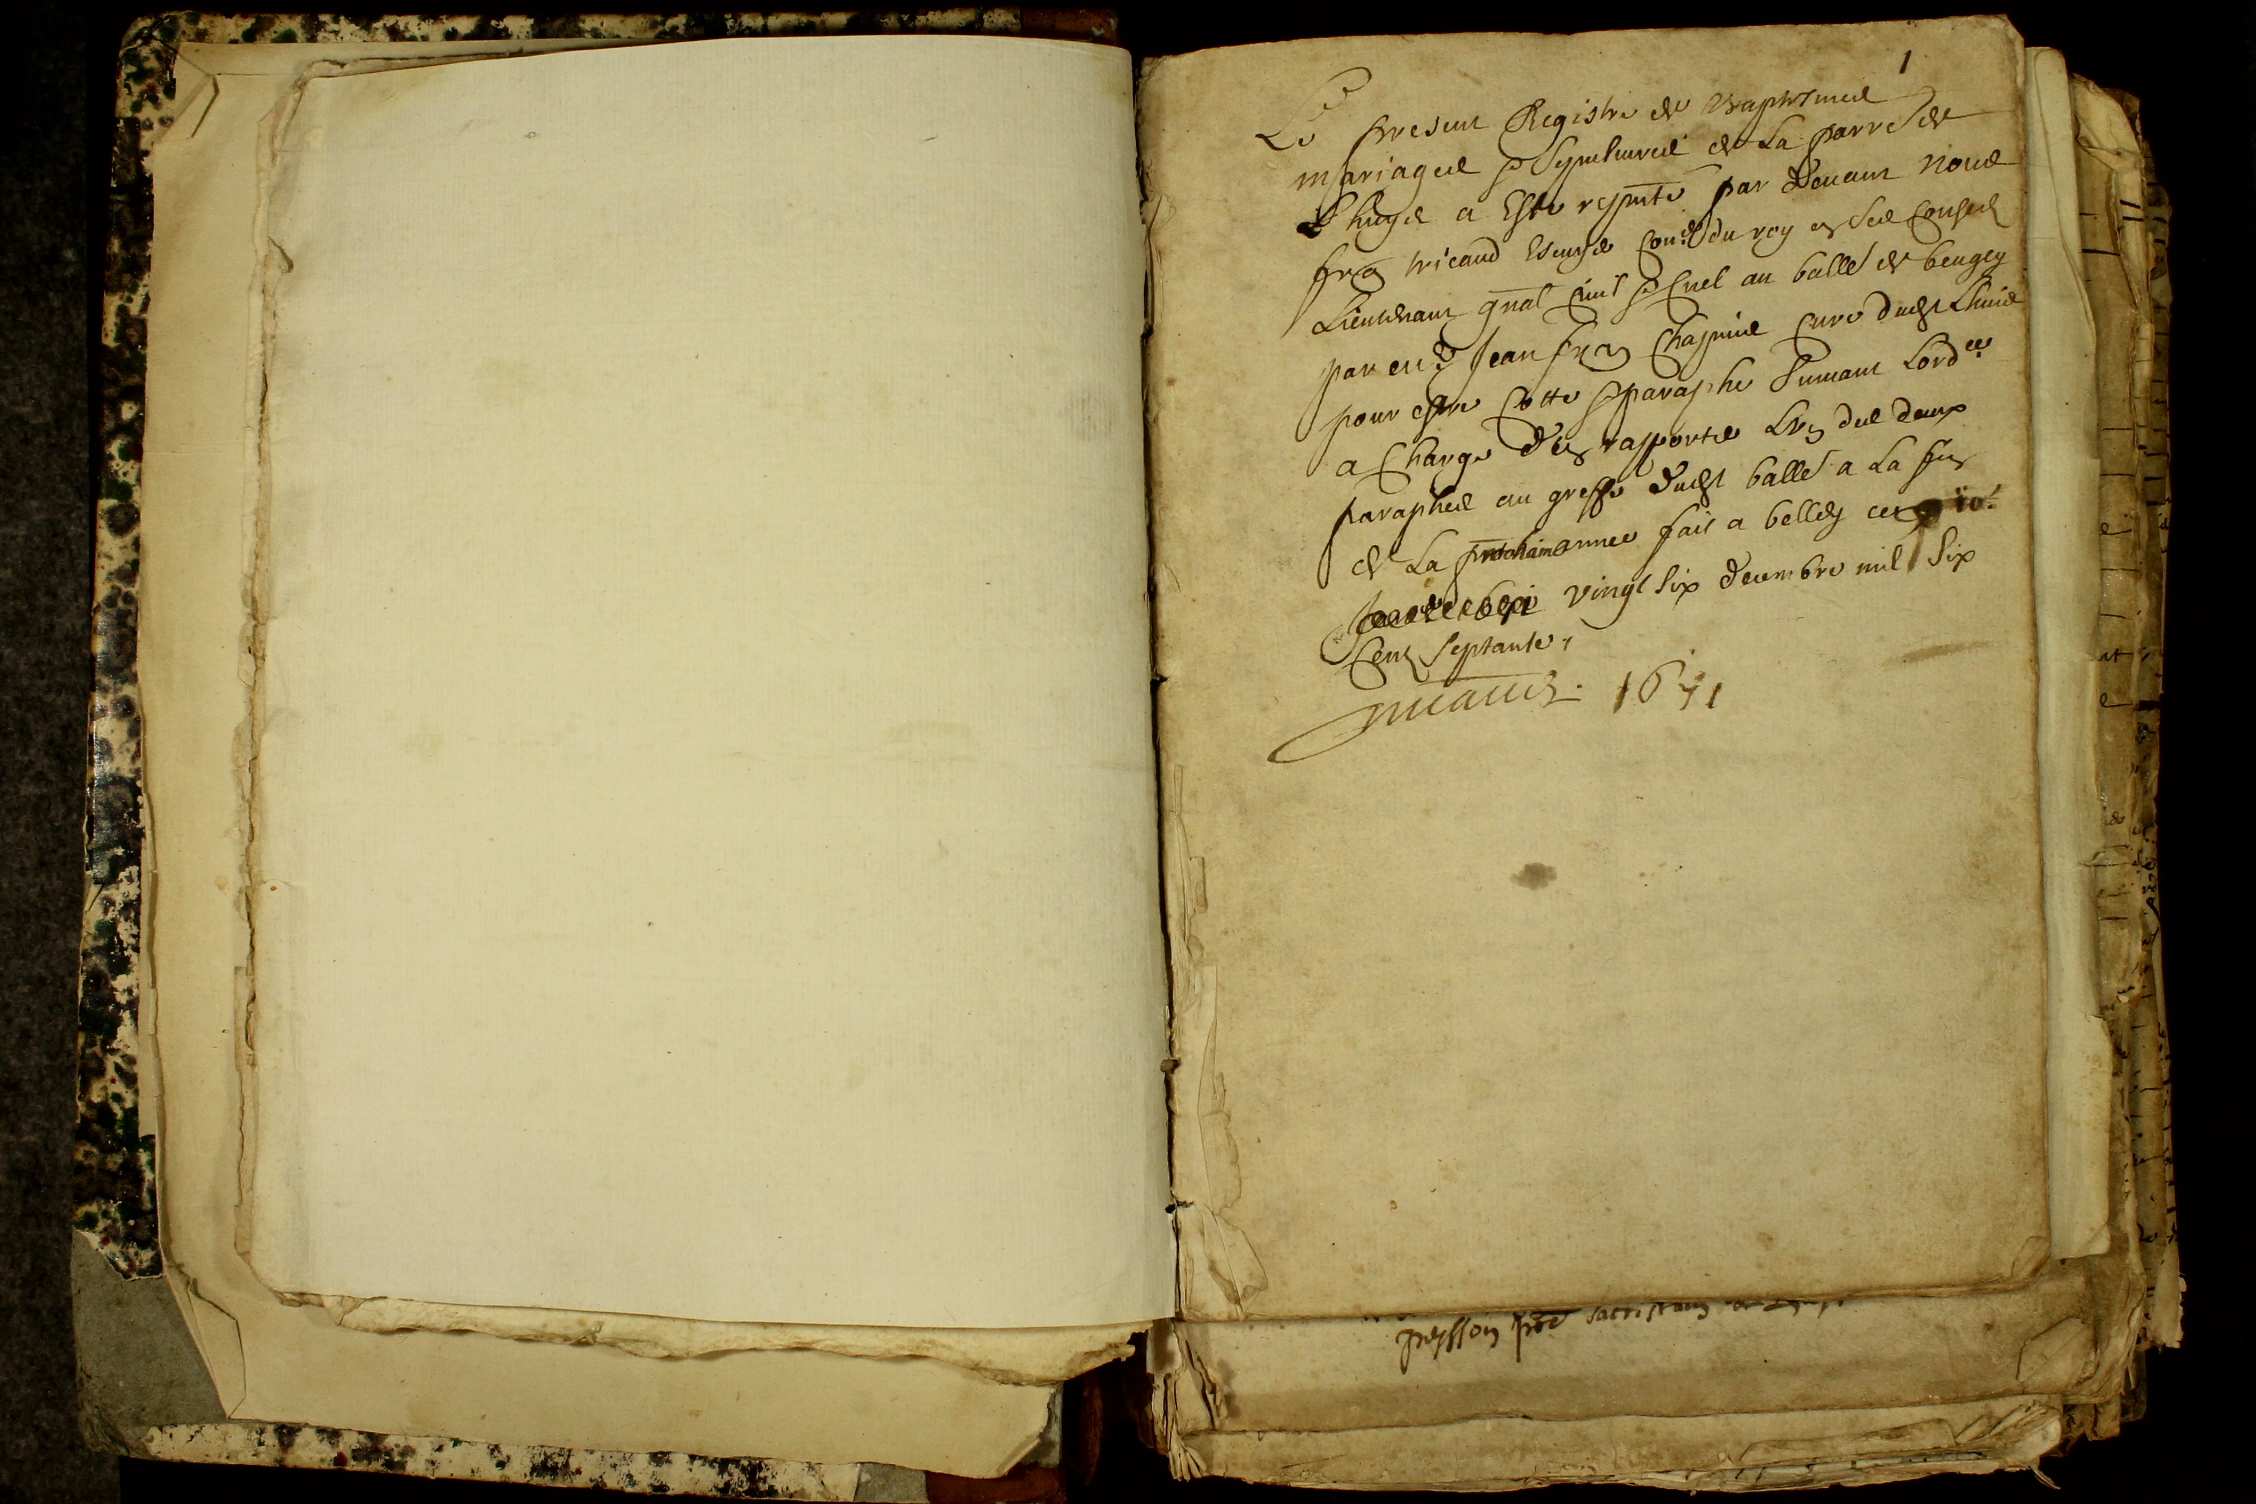 1
Le present Registre de Baptesmes
mariages & sepultures de La parr^e de
Lhuys a Este reputé par devant Nous
fr^s tricaud Escuye Con^er du roy en ses Conseils
Lieutenant gnal Civil & Cnel au balle de beugey
par m^e Jean fr^s Chapuis Cure dudt Lhuis
pour estre Cotte & paraphe Suivant Lord^ce
a Charge den rapporter Lun des deux
paraphes au greffe dudt balle a La fin
de La prochaine annee fait a belley ce
vingt six decembre mil six
Cent Septante
1671
prebstre sacristain